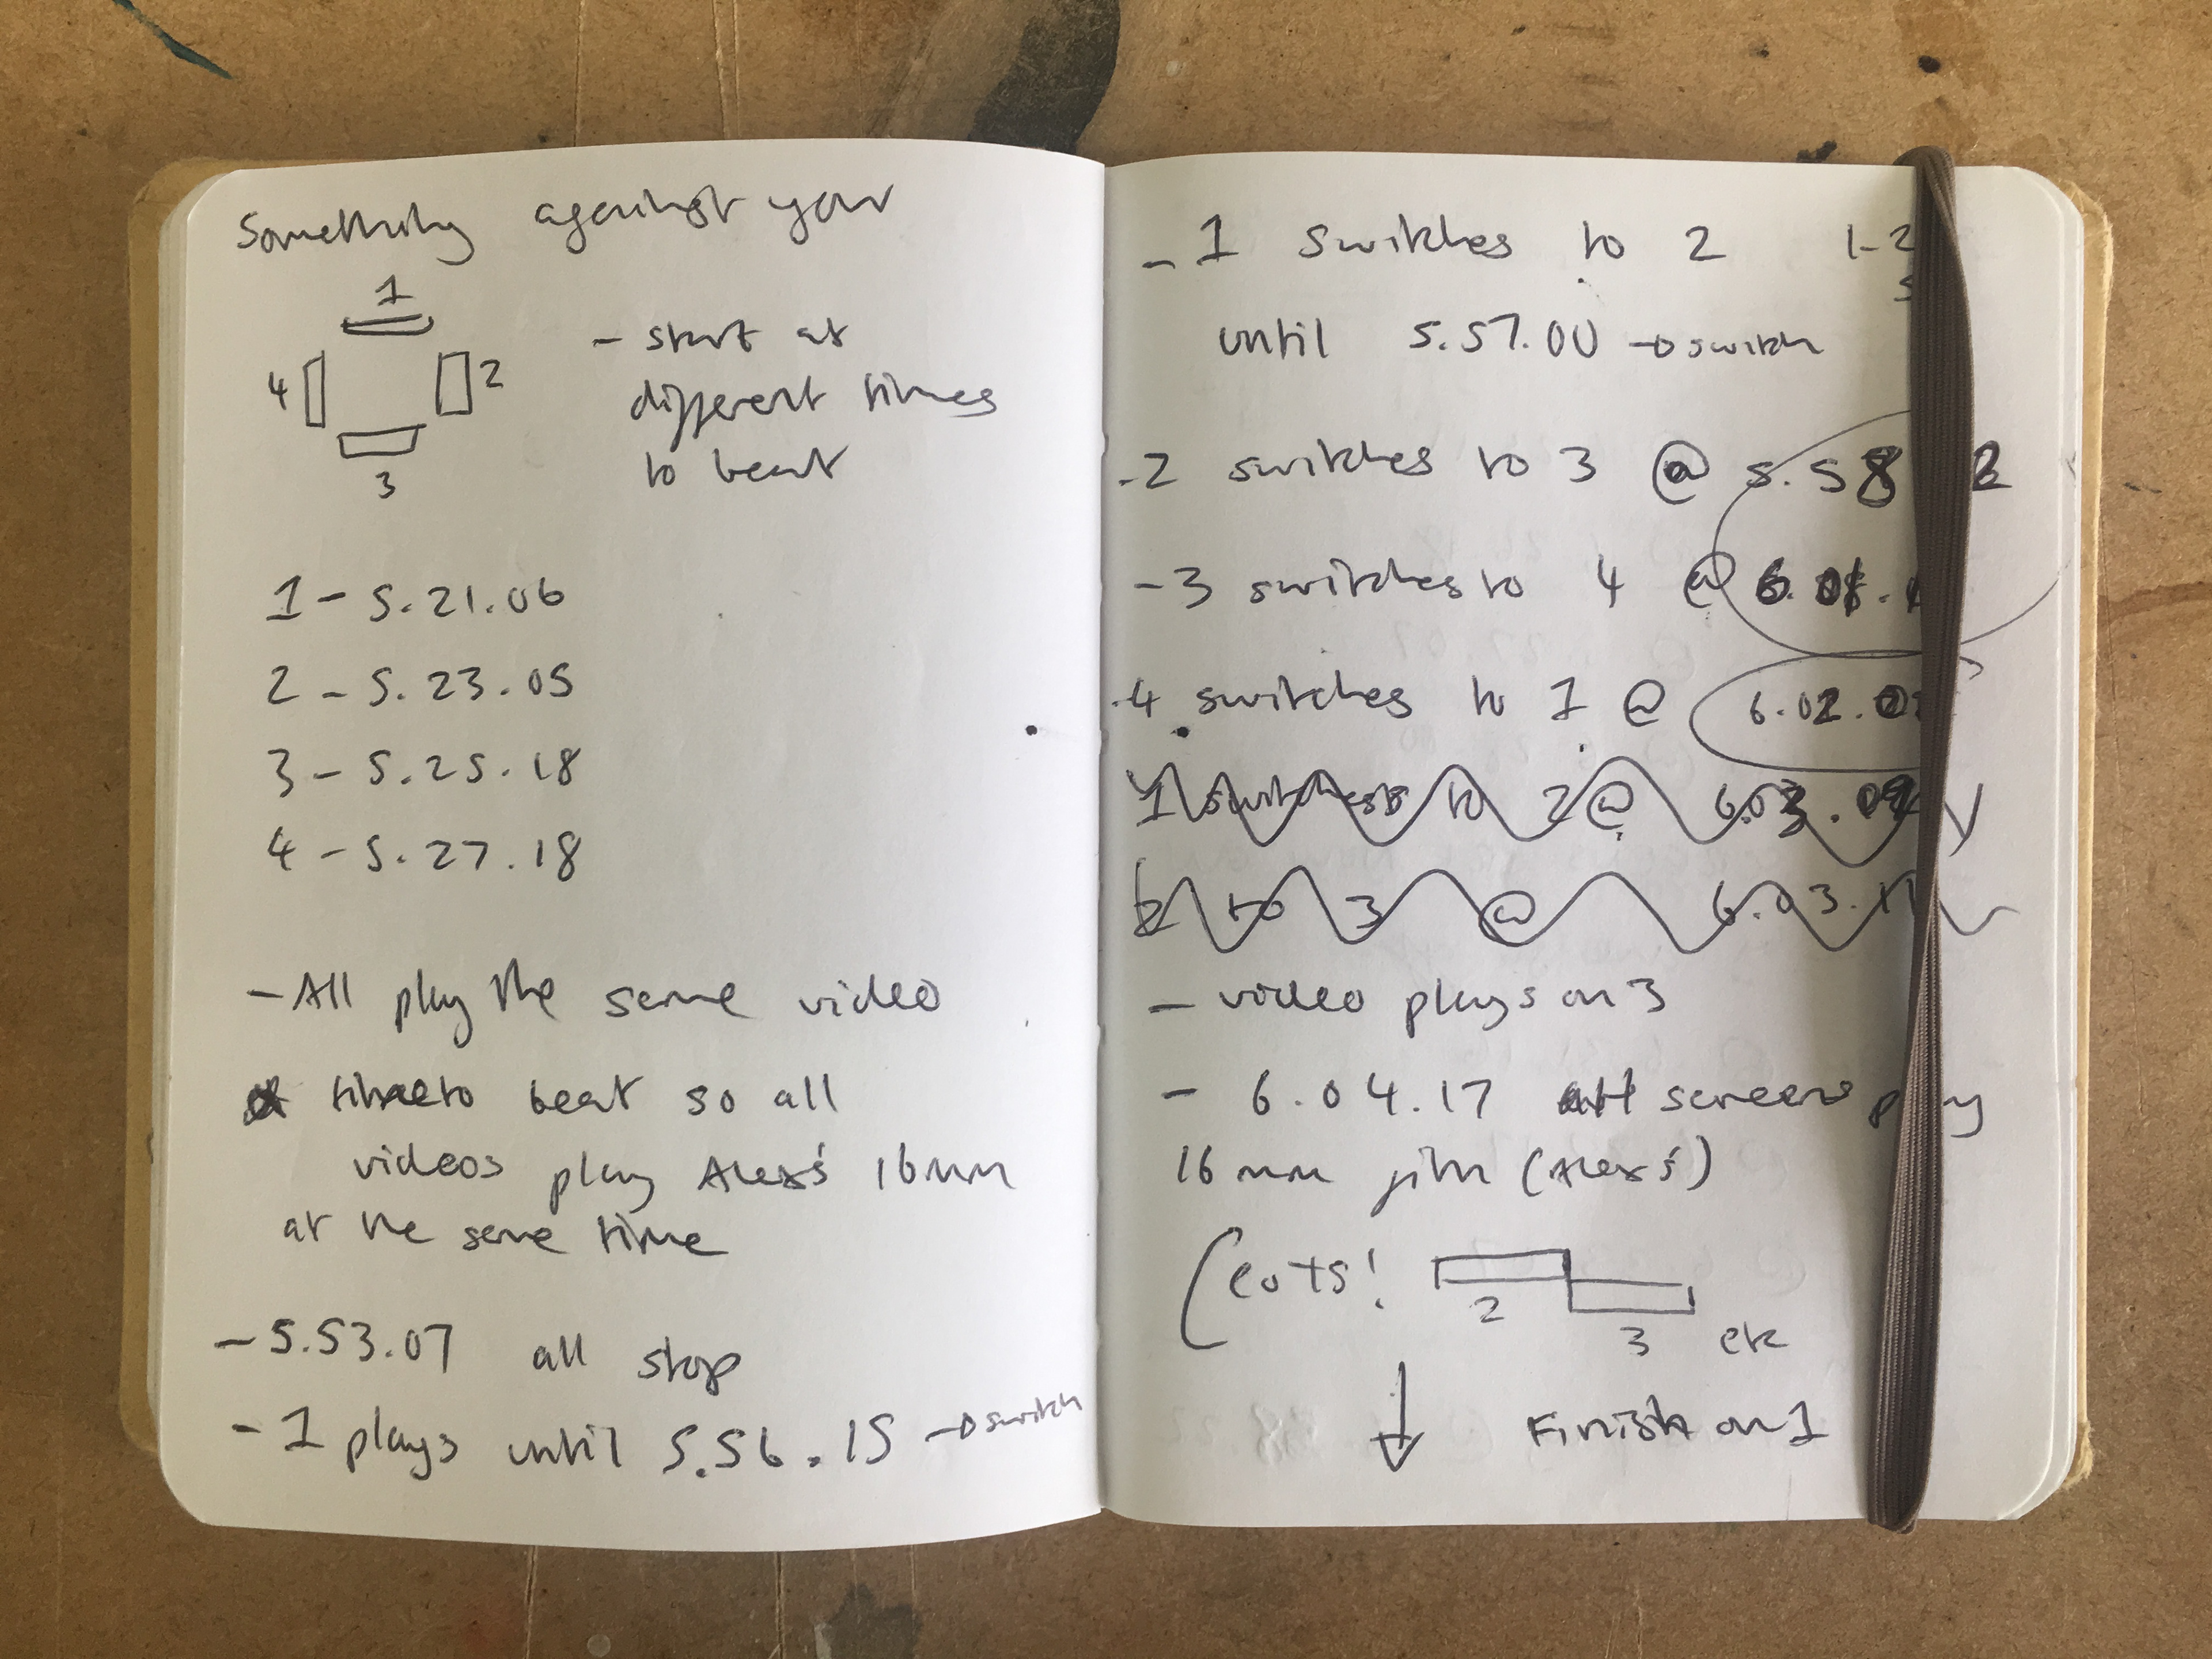 Something against you
1
4
2
3
- start at
different times
to beat
1 - 5.21.06
2 - 5.23.05
3 - 5.25.18
4 - 5.27.18
- All play the same video
time to beat so all
videos play Alex's 16mm
at the same time
- 5.53.07 all stop
- 1 plays until 5.56.15 → switch
- 1 switches to 2 1-2
until 5.57.00 → switch
- 2 switches to 3 @ 5.58
- 3 switches to 4 @
- 4 switches to 1 @ 6.02.
1 switches to 2 @
2 to 3 @ 6.03.
- video plays on 3
- 6.04.17 all screens play
16mm film (Alex's)
(cuts!
2
3 etc
↓ Finish on 1